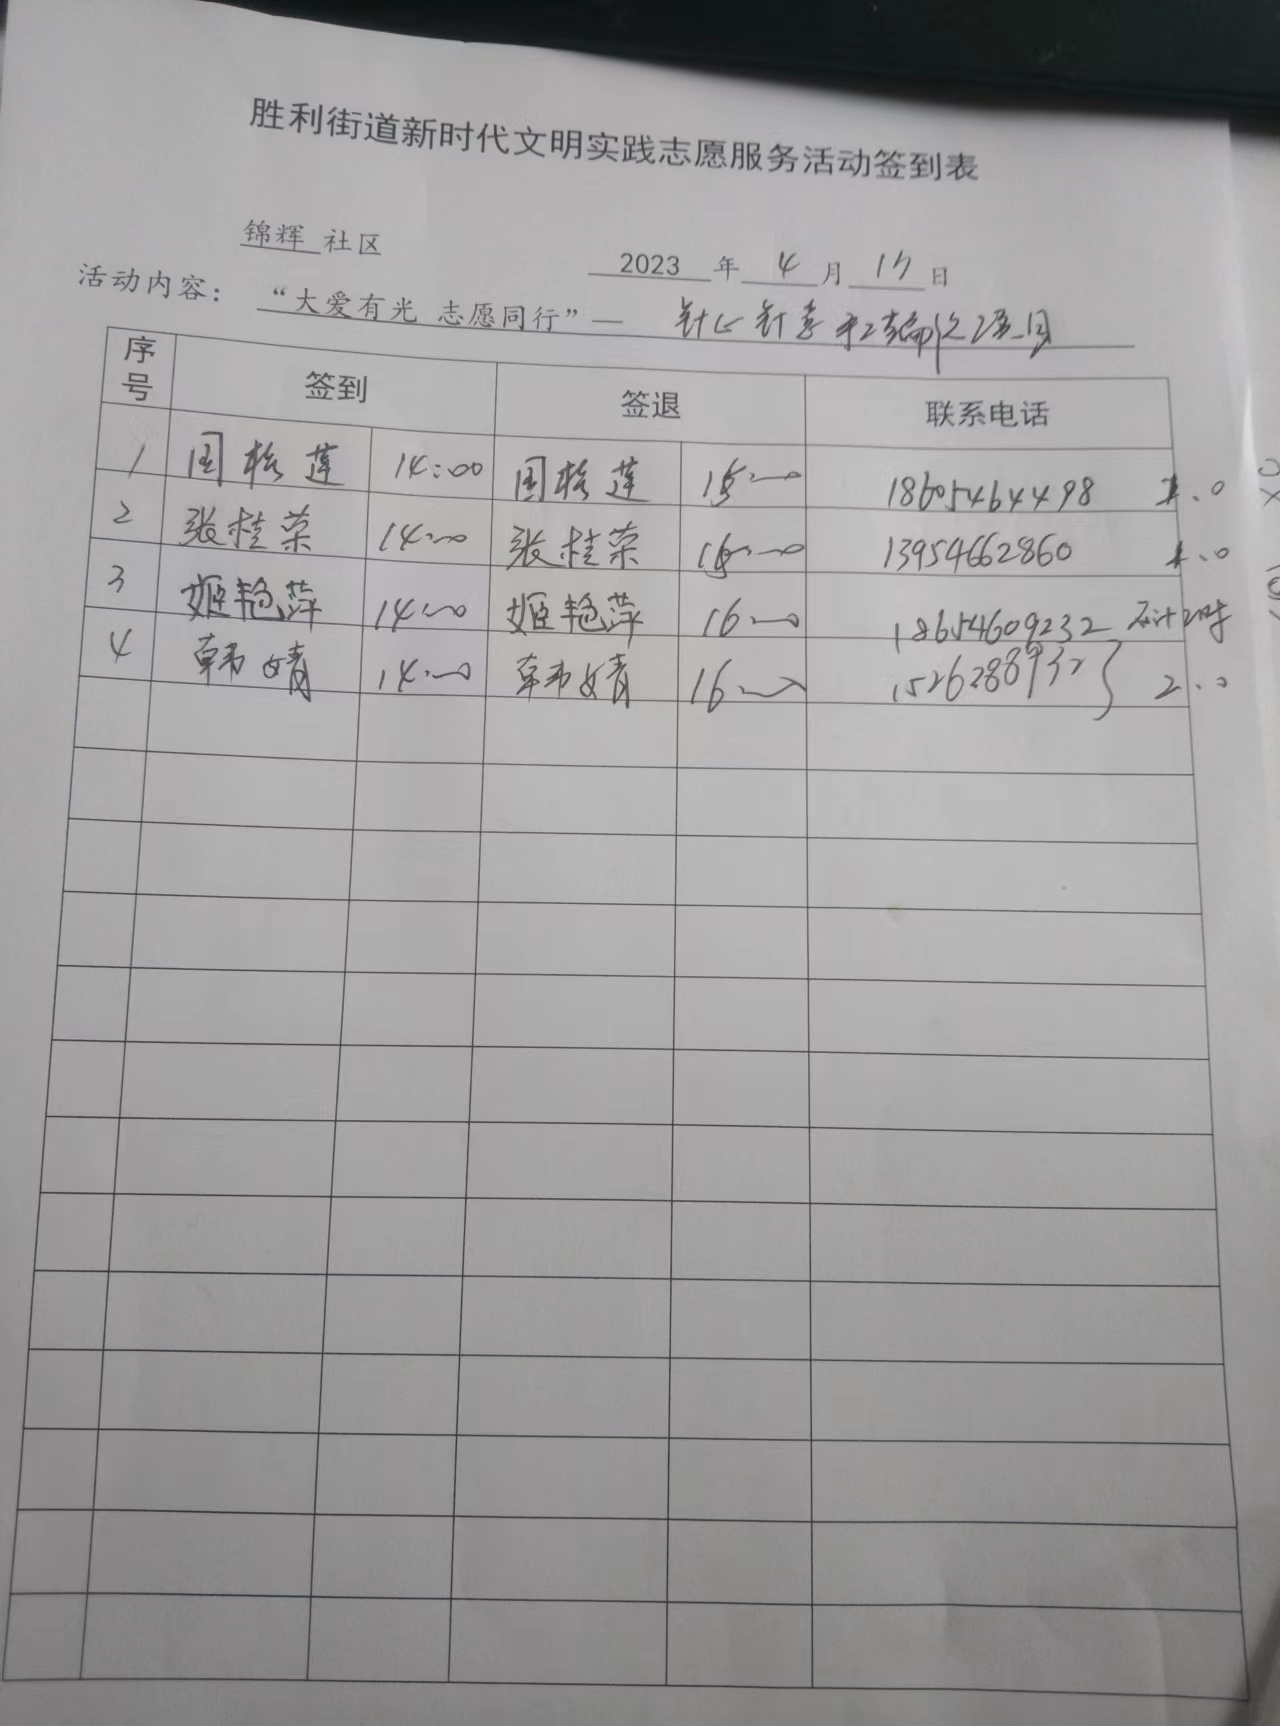 胜利街道新时代文明实践志愿服务活动签到表
锦辉 社区
2023 年 4 月 17 日
活动内容： “大爱有光 志愿同行”—
序号 签到 签退 联系电话
1 国松莲 14:00 国松莲 15:00 18605464498
2 张桂荣 14:00 张桂荣 13954662860
3 姬艳萍 14:00 姬艳萍 16:00 18654609232
4 韩婧 14:00 韩婧 16:00 1526288932 2.0